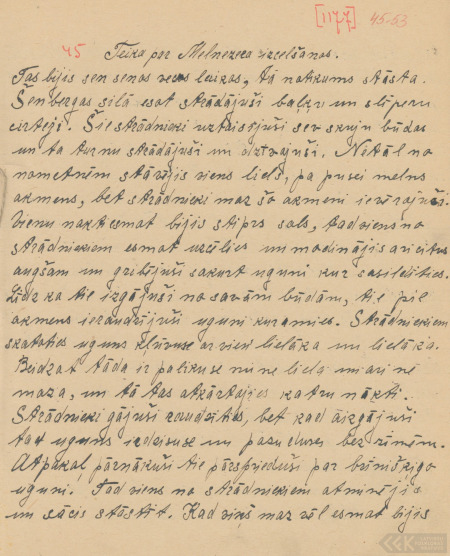 [1177] 45-53
45 Teika par Melnezera izcelšanos.
Tas bijis sen senos vecos laikos, tā notikums stāsta.
Šenbergas silā esot strādājuši baļķu un slīperu
cirtēji. Šie strādnieki uztaisījuši sev skuju būdas
un ta turnu strādājuši un dzīvojuši. Netāl no
nometnēm stāvējis viens liels, pa pusei melns
akmens, bet strādnieki maz šo akmeni ievērojuši.
Vienu nakti esmat bijis stiprs sals, tad viens no
strādniekiem esmat uzcēlies un modinājis arī citus
augšām un gribējuši sakurt uguni kur sasildīties.
Līdz ka tie izgājuši no savām būdām, tie pie
akmens ieraudzījuši uguni kuramies. Strādniekiem
skatoties uguns kļuvuse ar vien lielāka un lielāka.
Beidzot tāda ir palikuse ne ne liela un ari ne
maza, un tā tas atkārtojies katru nakti.
Strādnieki gājuši raudzīties, bet kad aizgājuši
tad uguns izdzisuse un pazuduse bez zīmēm.
Atpakaļ pārnākuši tie pārsprieduši par brīnišķīgo
uguni. Tad viens no strādniekiem atminējis
un sācis stāstīt. Kad viņš maz vēl esmat bijis